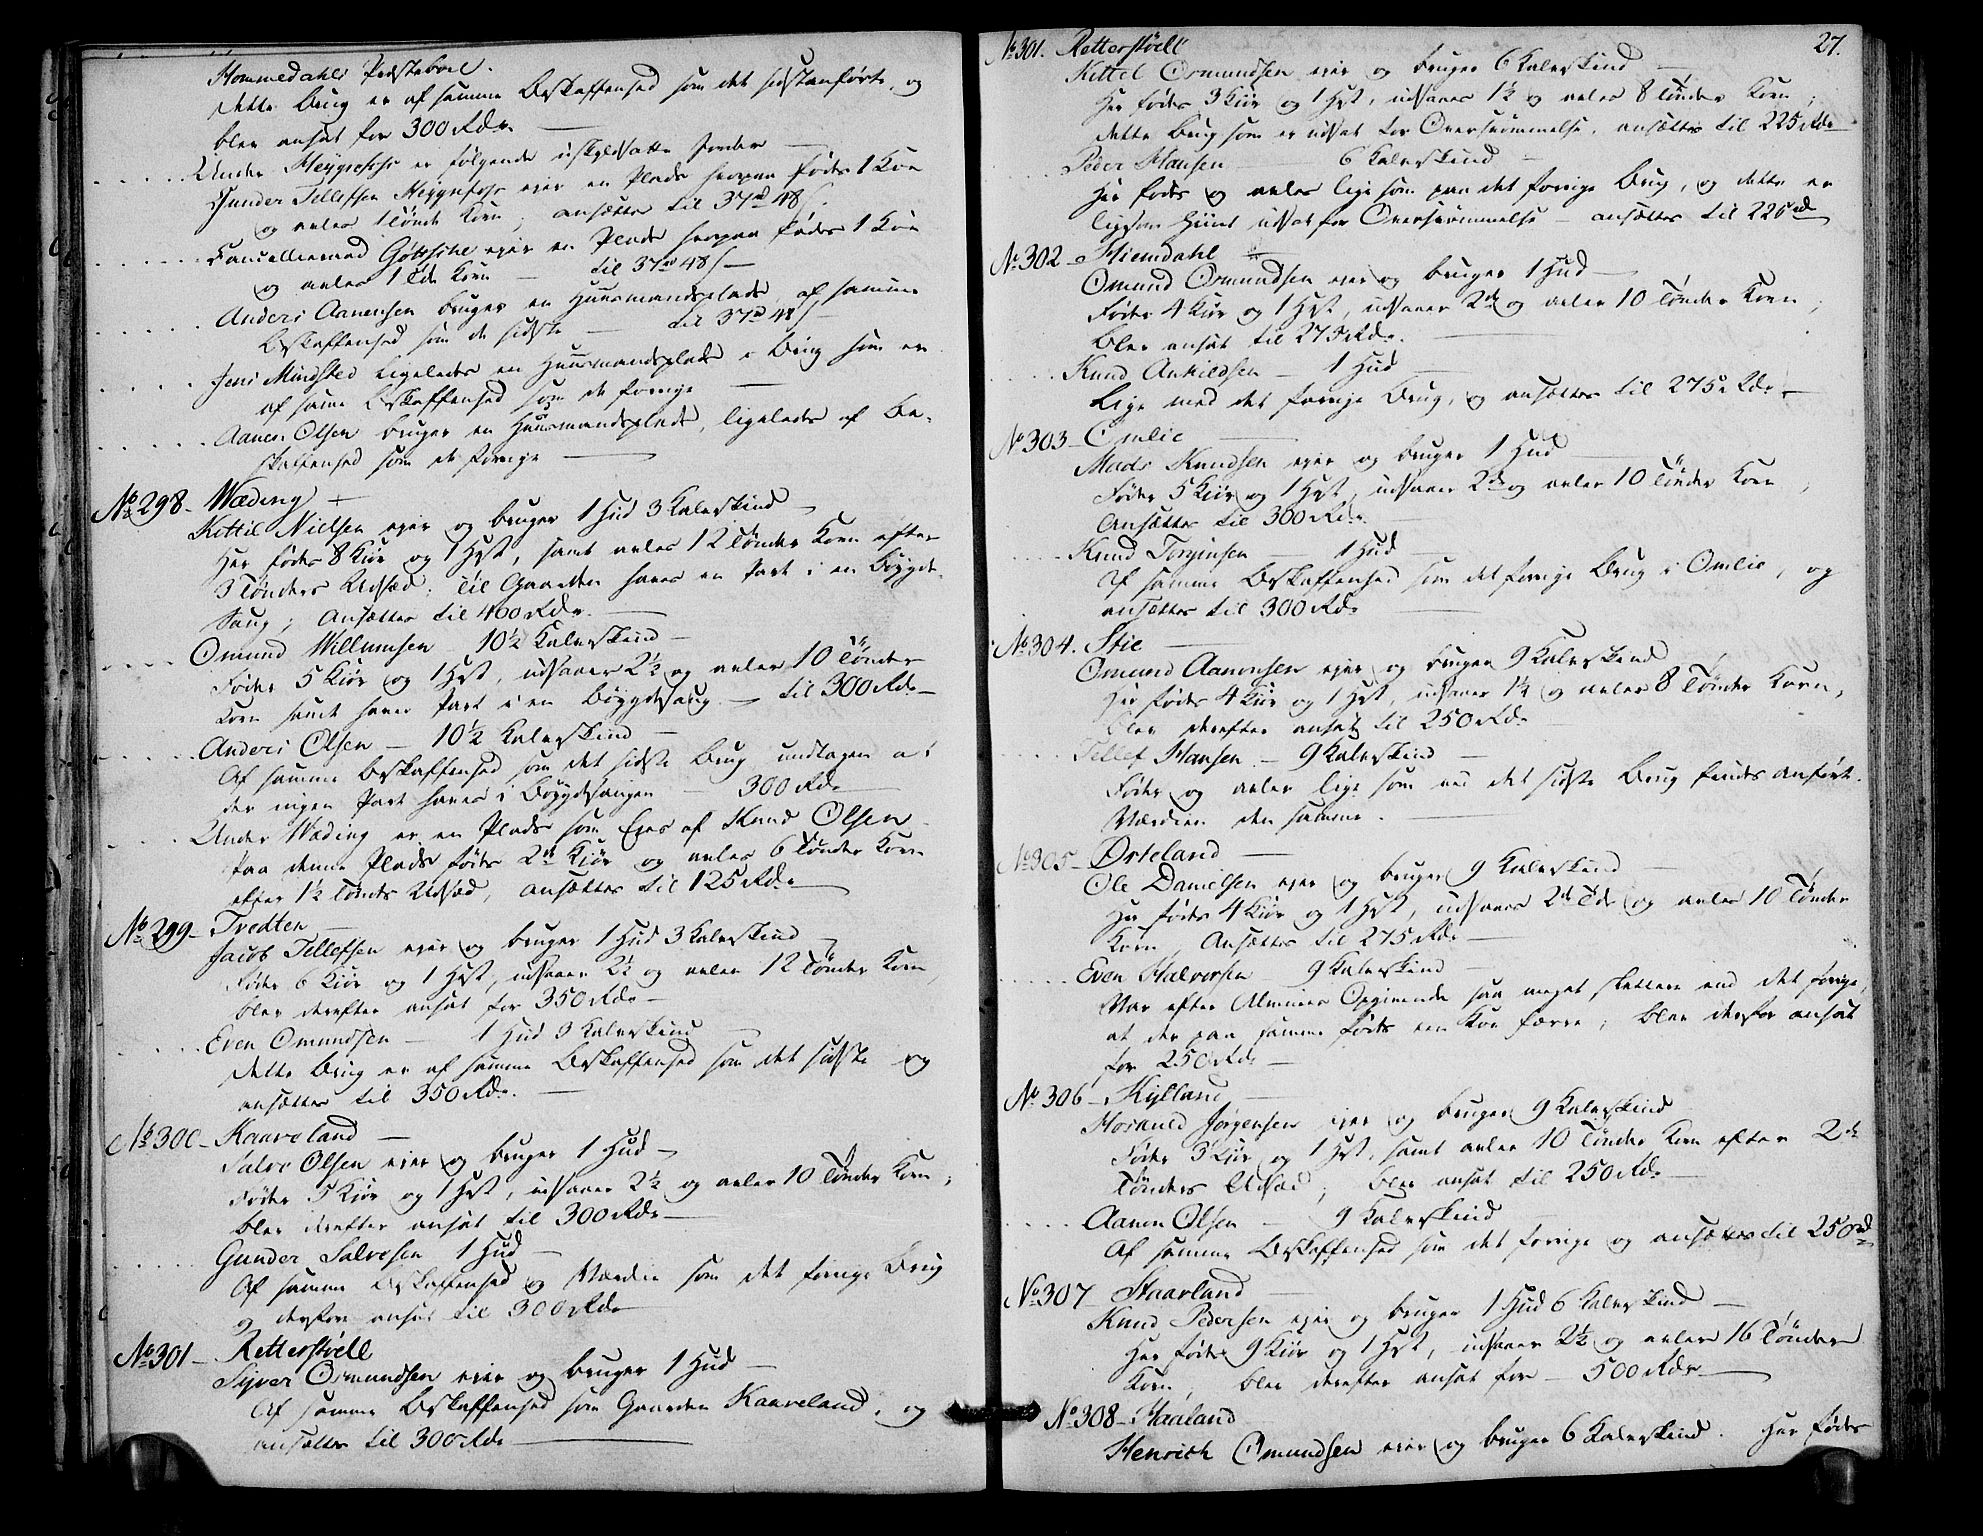 Hommedahls Præsteboel.
dette Brug er af samme Beskaffenhed som det sidstanførte, og
blev ansat for 300 Rdr.
Under Heggefos er følgende uskyldsatte Jorder
Gunder Tellefsen Heggefos ejer en Plads hvorpaa fødes 1 Koe
og avles 1 Tønde Korn; ansættes til 37rd 48 s
Cancellieraad ejer en Plads hvorpaa fødes 1 Koe
og avles 1 Tde Korn — til 37rd 48 s —
Anders Aanensen bruger en Huusmandsplads af samme
Beskaffenhed som de sidste — til 37rd 48 s
Jens Mindsted ligeledes en Huusmandsplads i Brug som er
af samme Beskaffenhed som de forrige
Aanen Olsen bruger en Huusmandsplads, ligeledes af Be-
skaffenhed som de forrige
No 298. Wæding
Kittil Nielsen ejer og bruger 1 Hud 3 Kalvskind
Her fødes 8 Kiør og 1 Hest, samt avles 12 Tønder Korn efter
3 Tønders Udsæd; til Gaarden haves en Part i en Bøygde-
Saug; Ansættes til 400 Rdr.
Omund Willumsen 10½ Kalvskind —
Føder 5 Kiør og 1 Hest, udsaaer 2½ og avler 10 Tønder
Korn samt haver Part i en Bøygdesaug — til 300 Rdr —
Anders Olsen — 10½ Kalvskind —
Af samme Beskaffenhed som det sidste Brug undtagen at
der ingen Part haves i Bøygdesaugen — 300 Rdr
Under Wæding er en Plads som Ejes af Knud Olsen
Paa denne Plads fødes 2de Kiør og avles 6 Tønder Korn
efter 1½ Tønders Udsæd, ansættes til 125 Rdr
No 299. Tvedten
Jacob Tellefsen ejer og bruger 1 Hud 3 Kalvskind
Føder 6 Kiør og 1 Hest, udsaaer 2½ og avler 12 Tønder Korn,
blev derefter ansat for 350 Rdr —
Even Omundsen — 1 Hud 3 Kalvskind
Dette Brug er af samme Beskaffenhed som det sidste og
ansættes til 350 Rdr.
No 300. Kaaveland
Salve Olsen ejer og bruger 1 Hud —
Føder 5 Kiør og 1 Hest, udsaaer 2½ og avler 10 Tønder Korn,
blev derefter ansat til 300 Rdr —
Gunder Salvesen 1 Hud —
Af samme Beskaffenhed og Værdie som det forrige Brug
og derfor ansat til 300 Rdr
No 301. Retterstøell
Sijver Osmundsen ejer og bruger 1 Hud —
Af samme Beskaffenhed som Gaarden Kaaveland, og
ansættes til 300 Rdr
27.
No 301. Retterstøell
Kittel Osmundsen ejer og bruger 6 Kalvskind
Her fødes 3 Kiør og 1 Hest, udsaaes 1½ og avles 8 Tønder Korn;
dette Brug som er udsat for Oversvømmelse, ansættes til 225 Rdr
Peder Hansen 6 Kalvskind —
Her fødes og avles lige som paa det forrige Brug, og dette er
ligesom hiint udsat for Oversvømmelse — ansættes til 225rd
No 302. Hiemdahl
Omund Osmundsen ejer og bruger 1 Hud —
Føder 4 Kiør og 1 Hest, udsaaer 2de og avler 10 Tønder Korn,
Blev ansat til 275 Rdr.
Knud Askildsen — 1 Hud
Lige med det forrige Brug, og ansættes til 275 Rdr.
No 303. Omlie
Mads Knudsen ejer og bruger 1 Hud
Føder 5 Kiør og 1 Hest, udsaaer 2de og avler 10 Tønder Korn;
Ansættes til 300 Rdr.
Knud Torjusen — 1 Hud
Af samme Beskaffenhed som det forrige Brug i Omlie, og
ansættes til 300 Rdr
No 304. Stie
Omund Aanensen ejer og bruger 9 Kalvskind
Her fødes 4 Kiør og 1 Hest, udsaaer 1½ og avler 8 Tønder Korn,
blev derefter ansat til 250 Rdr
Tellef Hansen — 9 Kalvskind
Føder og avler lige som ved det sidste Brug findes anført.
Værdien den samme.
No 305. Østeland
Ole Danielsen ejer og bruger 9 Kalvskind
Her fødes 4 Kiør og 1 Hest, udsaaes 2de Tdr og avles 10 Tønder
Korn, Ansættes til 275 Rdr
Even Halvorsen 9 Kalvskind
Var efter Almuens Opgivende saa meget slettere end det forrige,
at der paa samme fødes een Koe færre; blev derfor ansat
for 250 Rdr
No 306. Kylland
Hosvuld Jørgensen ejer og bruger 9 Kalvskind
Føder 3 Kiør og 1 Hest, samt avler 10 Tønder Korn efter 2de
Tønders Udsæd; blev ansat til 250 Rdr
Aanen Olsen — 9 Kalvskind
Af samme Beskaffenhed som det forrige og ansættes til 250rd
No 307. Staarland
Knud Pedersen ejer og bruger 1 Hud 6 Kalvskind —
Her fødes 9 Kiør og 1 Hest, udsaaer 2½ og avler 16 Tønder
Korn, blev derefter ansat for — 500 Rdr
No 308. Haaland
Henrich Omundsen ejer og bruger 6 Kalvskind. Her fødes